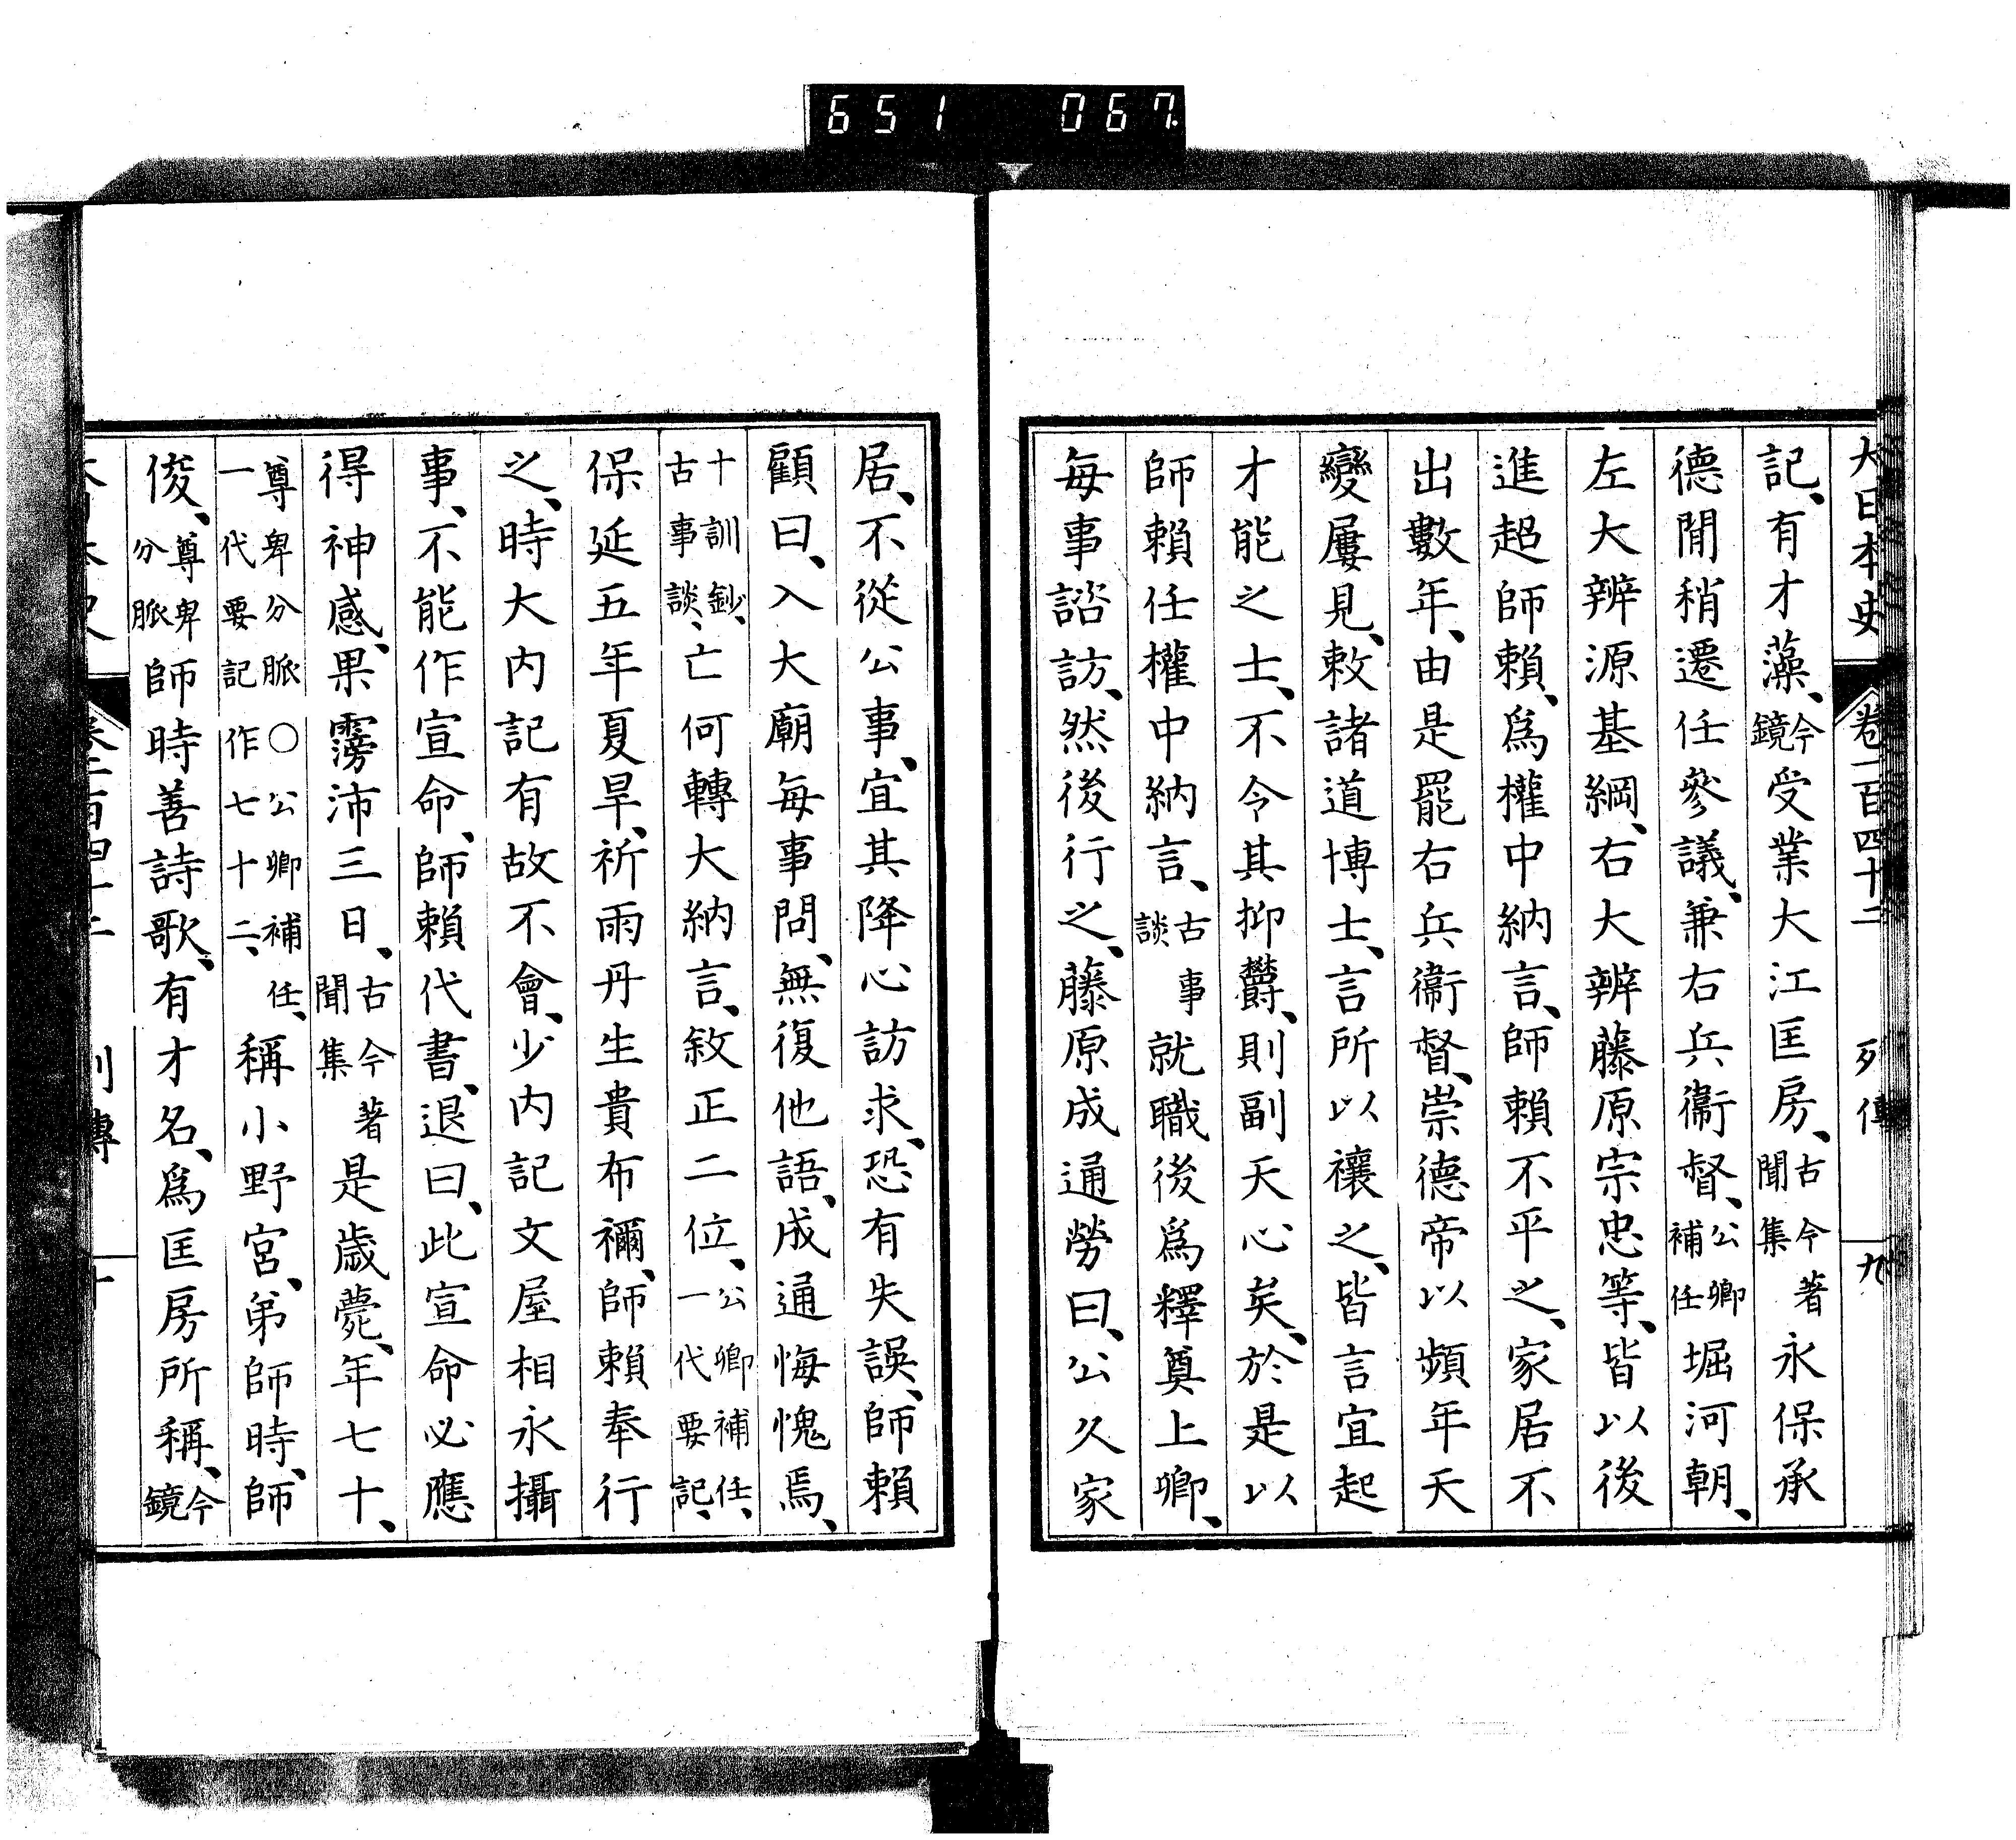 651 067
大日本史 卷一百四十二 列傳 九
記、有才藻、今鏡受業大江匡房、古今著聞集永保承
德閒稍遷任參議、兼右兵衞督、公卿補任堀河朝、
左大辨源基綱、右大辨藤原宗忠等、皆以後
進超師賴、爲權中納言、師賴不平之、家居不
出數年、由是罷右兵衞督、崇德帝以頻年天
變屢見、敕諸道博士、言所以禳之、皆言宜起
才能之士、不令其抑欝、則副天心矣、於是以
師賴任權中納言、古事談就職後爲釋奠上卿、
每事諮訪、然後行之、藤原成通勞曰、公久家
居、不從公事、宜其降心訪求、恐有失誤、師賴
顧曰、入大廟每事問、無復他語、成通悔愧焉、
十訓鈔、古事談、亡何轉大納言、敘正二位、公卿補任、一代要記、
保延五年夏旱、祈雨丹生貴布禰、師賴奉行
之、時大內記有故不會、少內記文屋相永攝
事、不能作宣命、師賴代書、退曰、此宣命必應
得神感、果霶沛三日、古今著聞集是歲薨、年七十、
尊卑分脈○公卿補任、一代要記作七十二、稱小野宮、弟師時、師
俊、尊卑分脈師時善詩歌、有才名、爲匡房所稱、今鏡
卷一百四十二 列傳 十